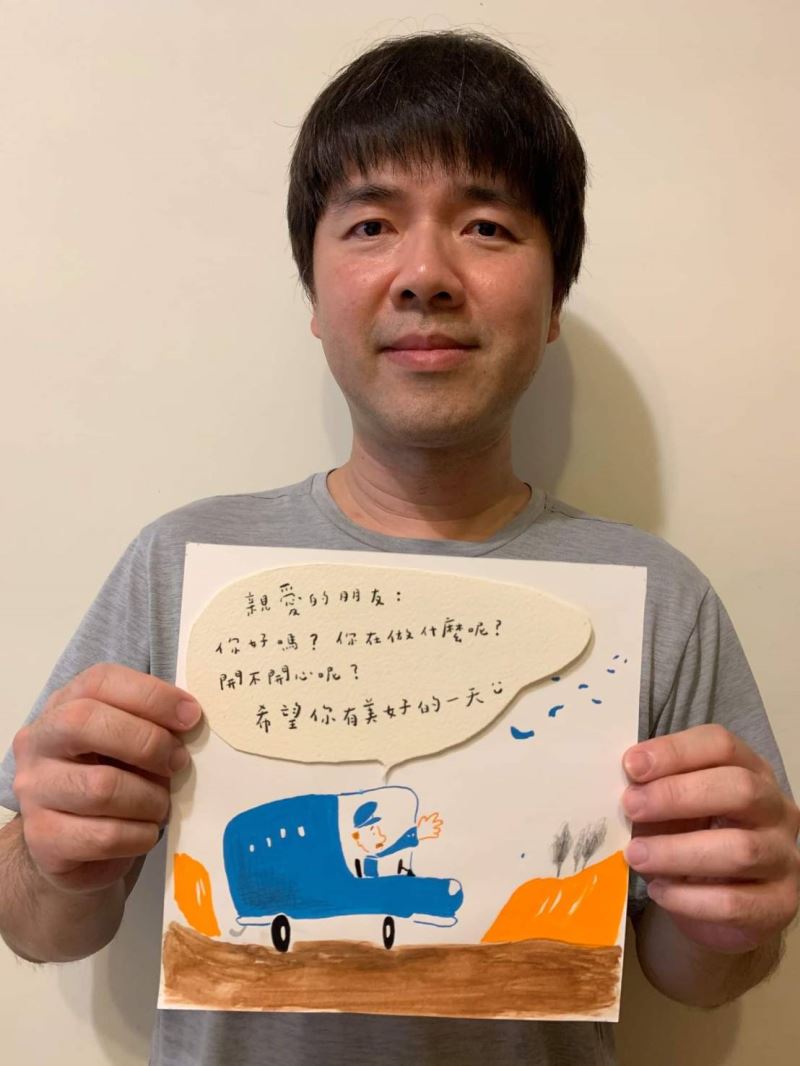 親愛的朋友：
你好嗎？你在做什麼呢？
開不開心呢？
希望你有美好的一天